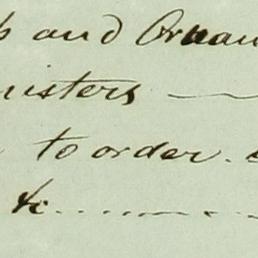 and
nisters
to order.
&c